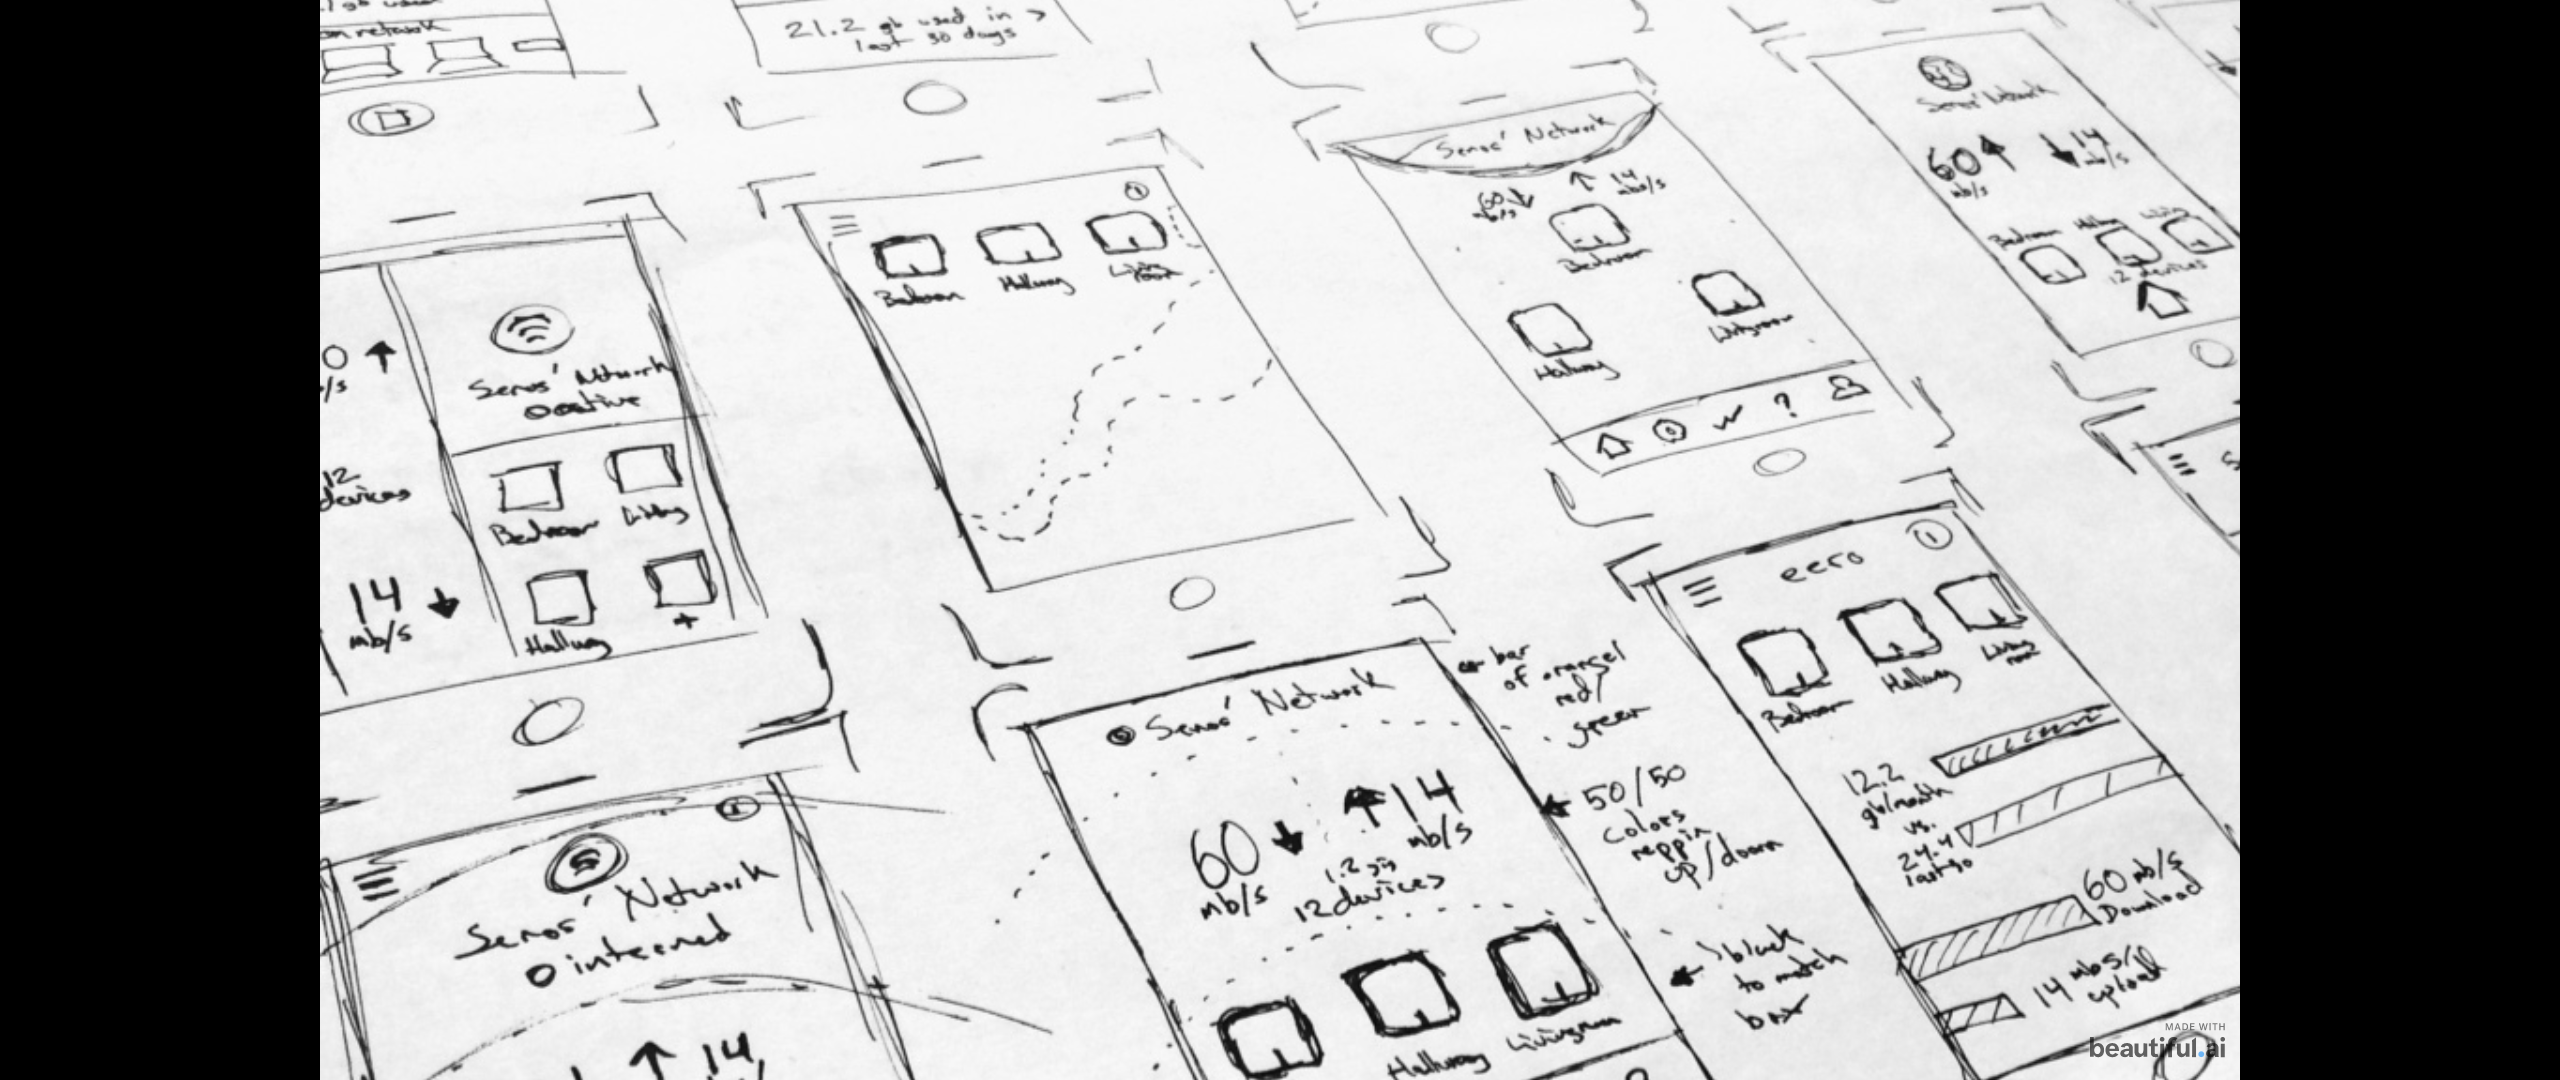 on network
21.2 gb used in >
last 30 days
Senos' Network
active
Bedroom
Living
Hallway
+
12
devices
14
mb/s
Bedroom
Hallway
Living
room
Senos' Network
60
mb/s
14
mbs/s
Bedroom
Hallway
Livingroom
?
Senos' Network
60
mb/s
14
mb/s
Bedroom
Hallway
Living
12 devices
Senos' Network
internet
14
Senos' Network
60
mb/s
14
mb/s
12 devices
Hallway
Livingroom
bar
of orange/
red/
green
50/50
colors
reppin
up/down
black
to match
box
eero
Bedroom
Hallway
Living
room
12.2
gb/month
vs.
24.4
last 30
60 mb/s
Download
14 mbs/s
upload
MADE WITH
beautiful.ai